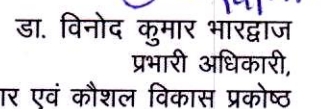 डा. विनोद कुमार भारद्वाज
प्रभारी अधिकारी,
एवं कौशल विकास प्रकोष्ठ